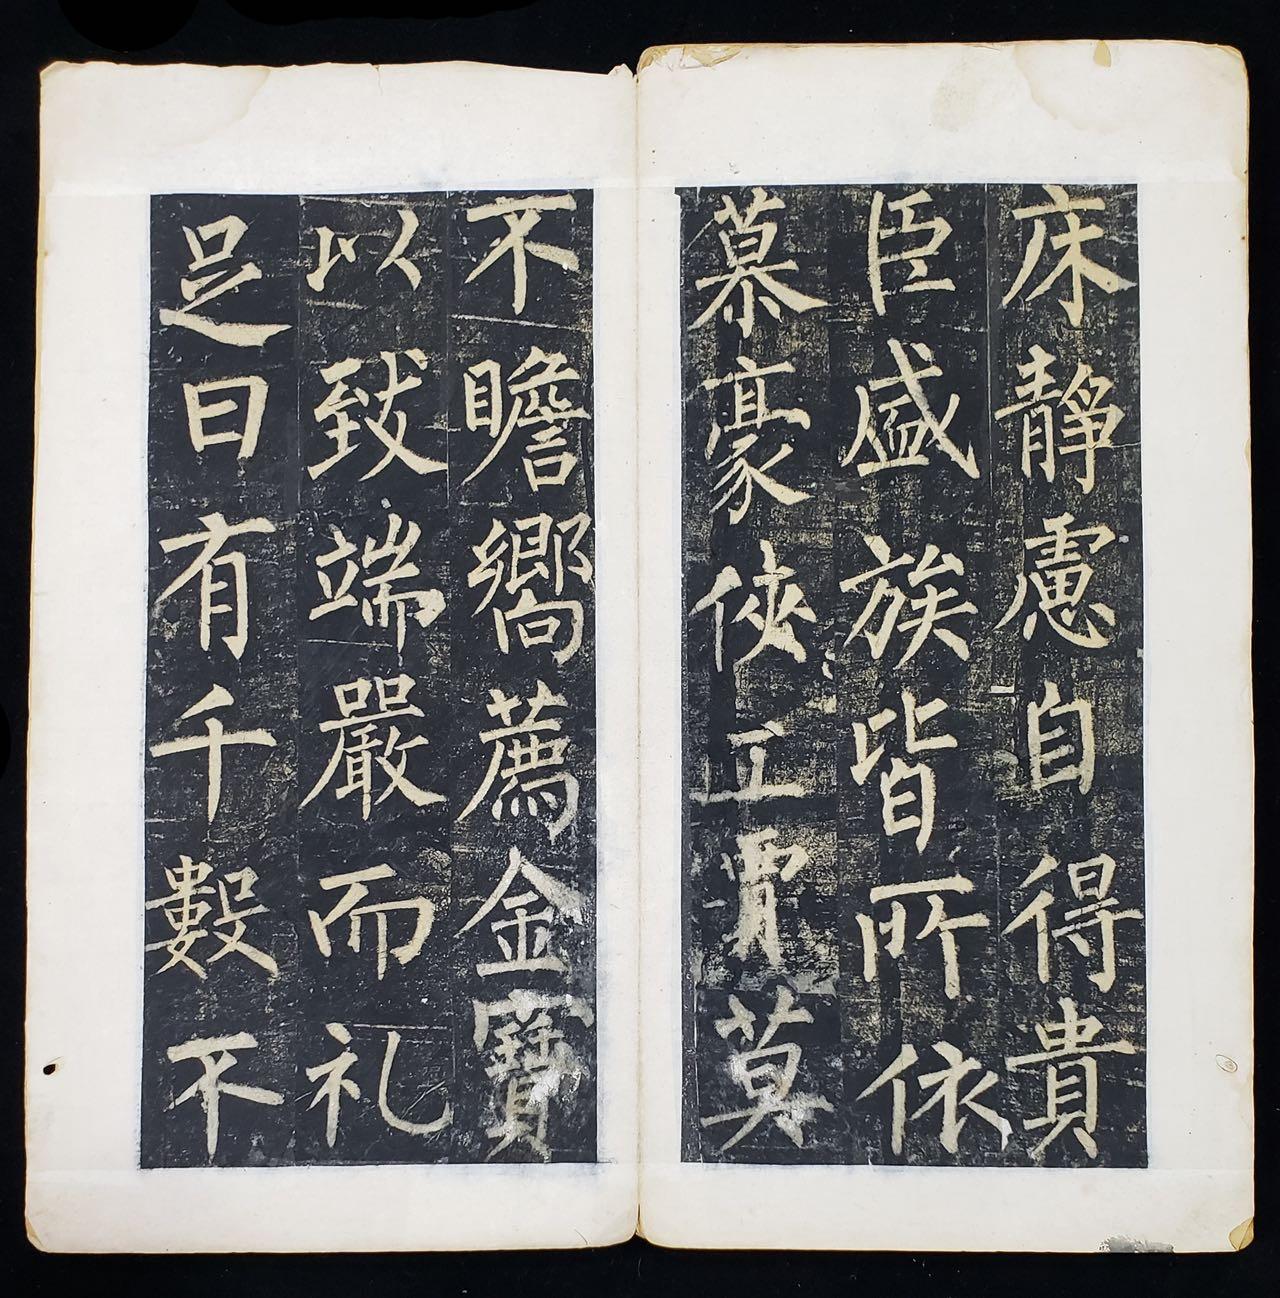 床靜慮自得貴
臣盛族皆所依
慕豪俠工賈莫
不瞻嚮薦金寶
以致端嚴而礼
足日有千數不